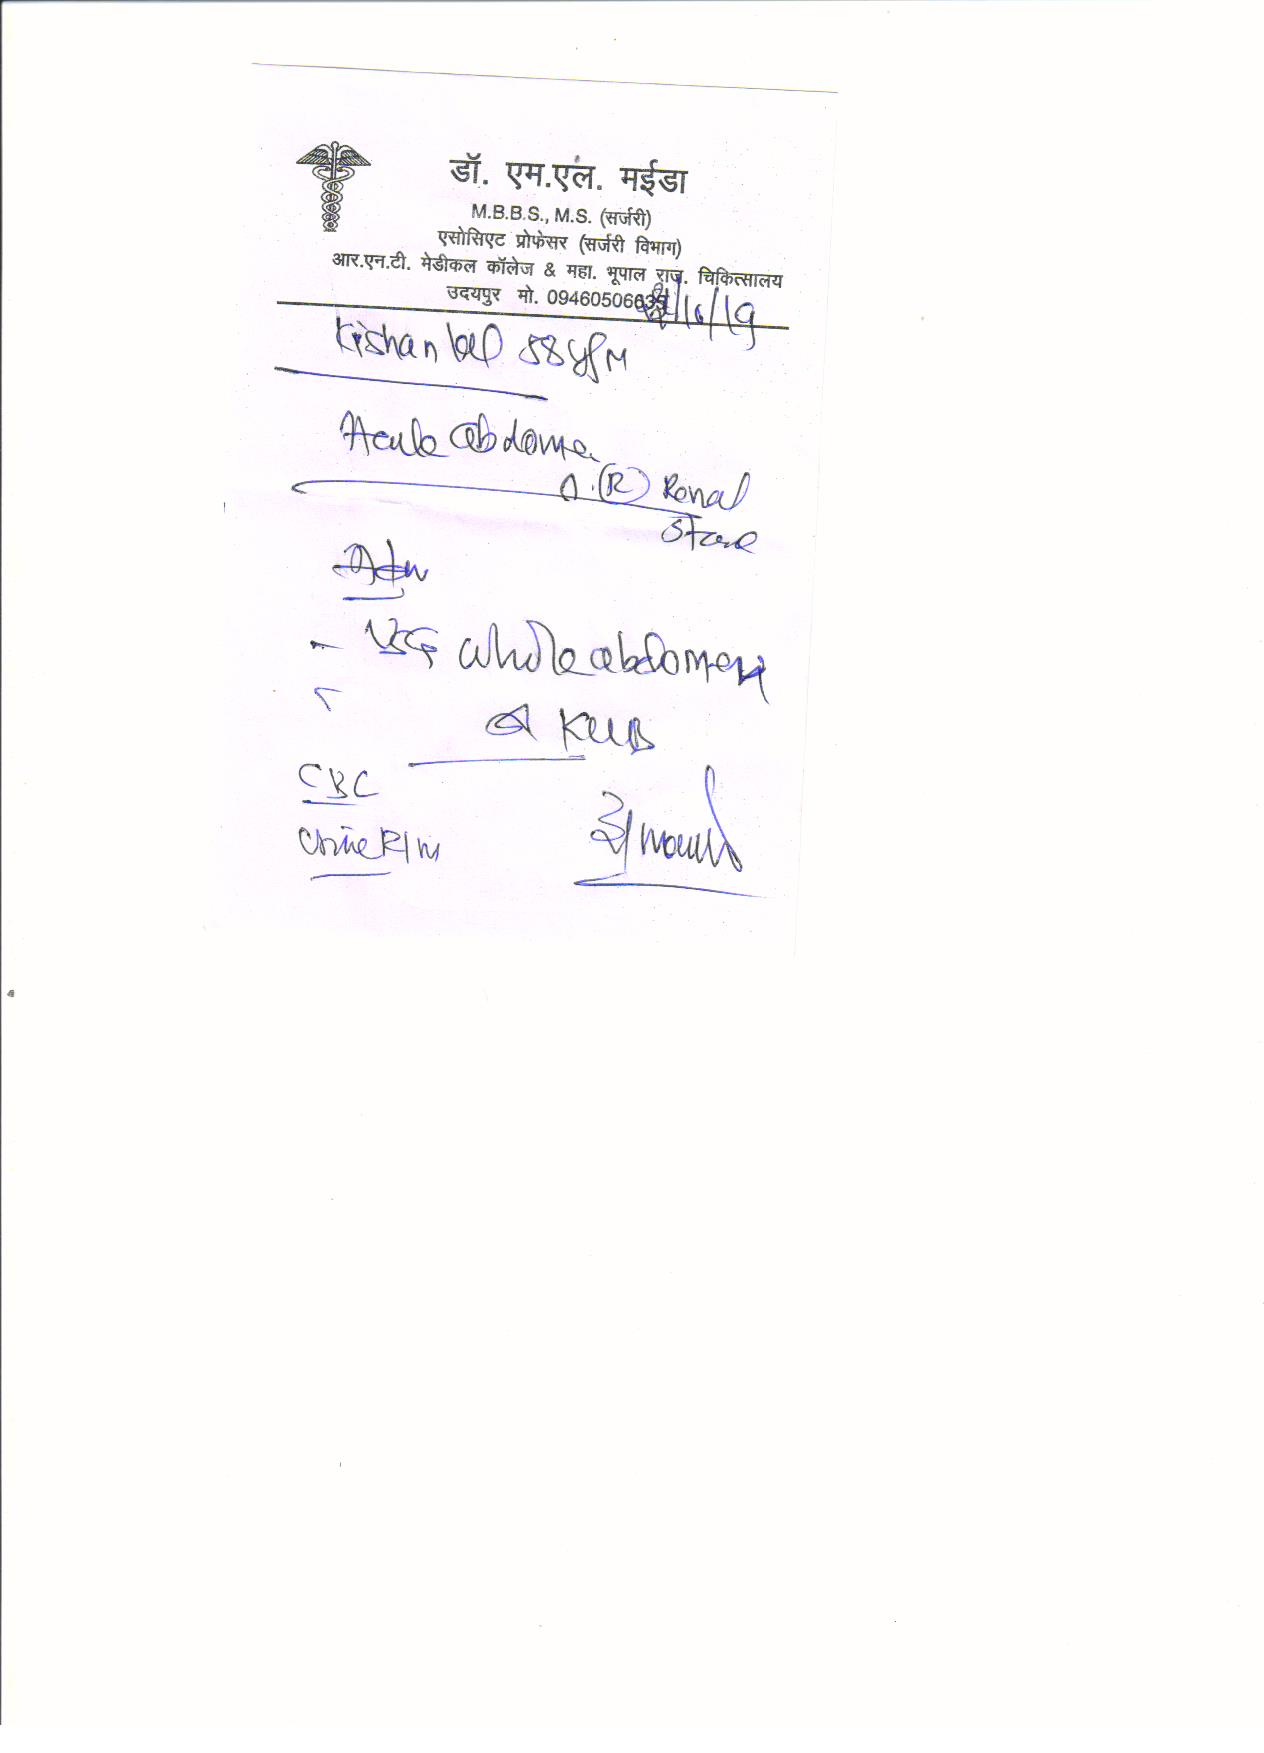 डॉ. एम.एल. मईडा
M.B.B.S., M.S. (सर्जरी)
एसोसिएट प्रोफेसर (सर्जरी विभाग)
आर.एन.टी. मेडीकल कॉलेज & महा. भूपाल राज. चिकित्सालय
उदयपुर मो. 09460506635
/10/19
Kishan lal 58 y/M
Acute abdomen
(R) Renal
Stone
Adv
- USG whole abdomen
& KUB
CBC
Urine R/M